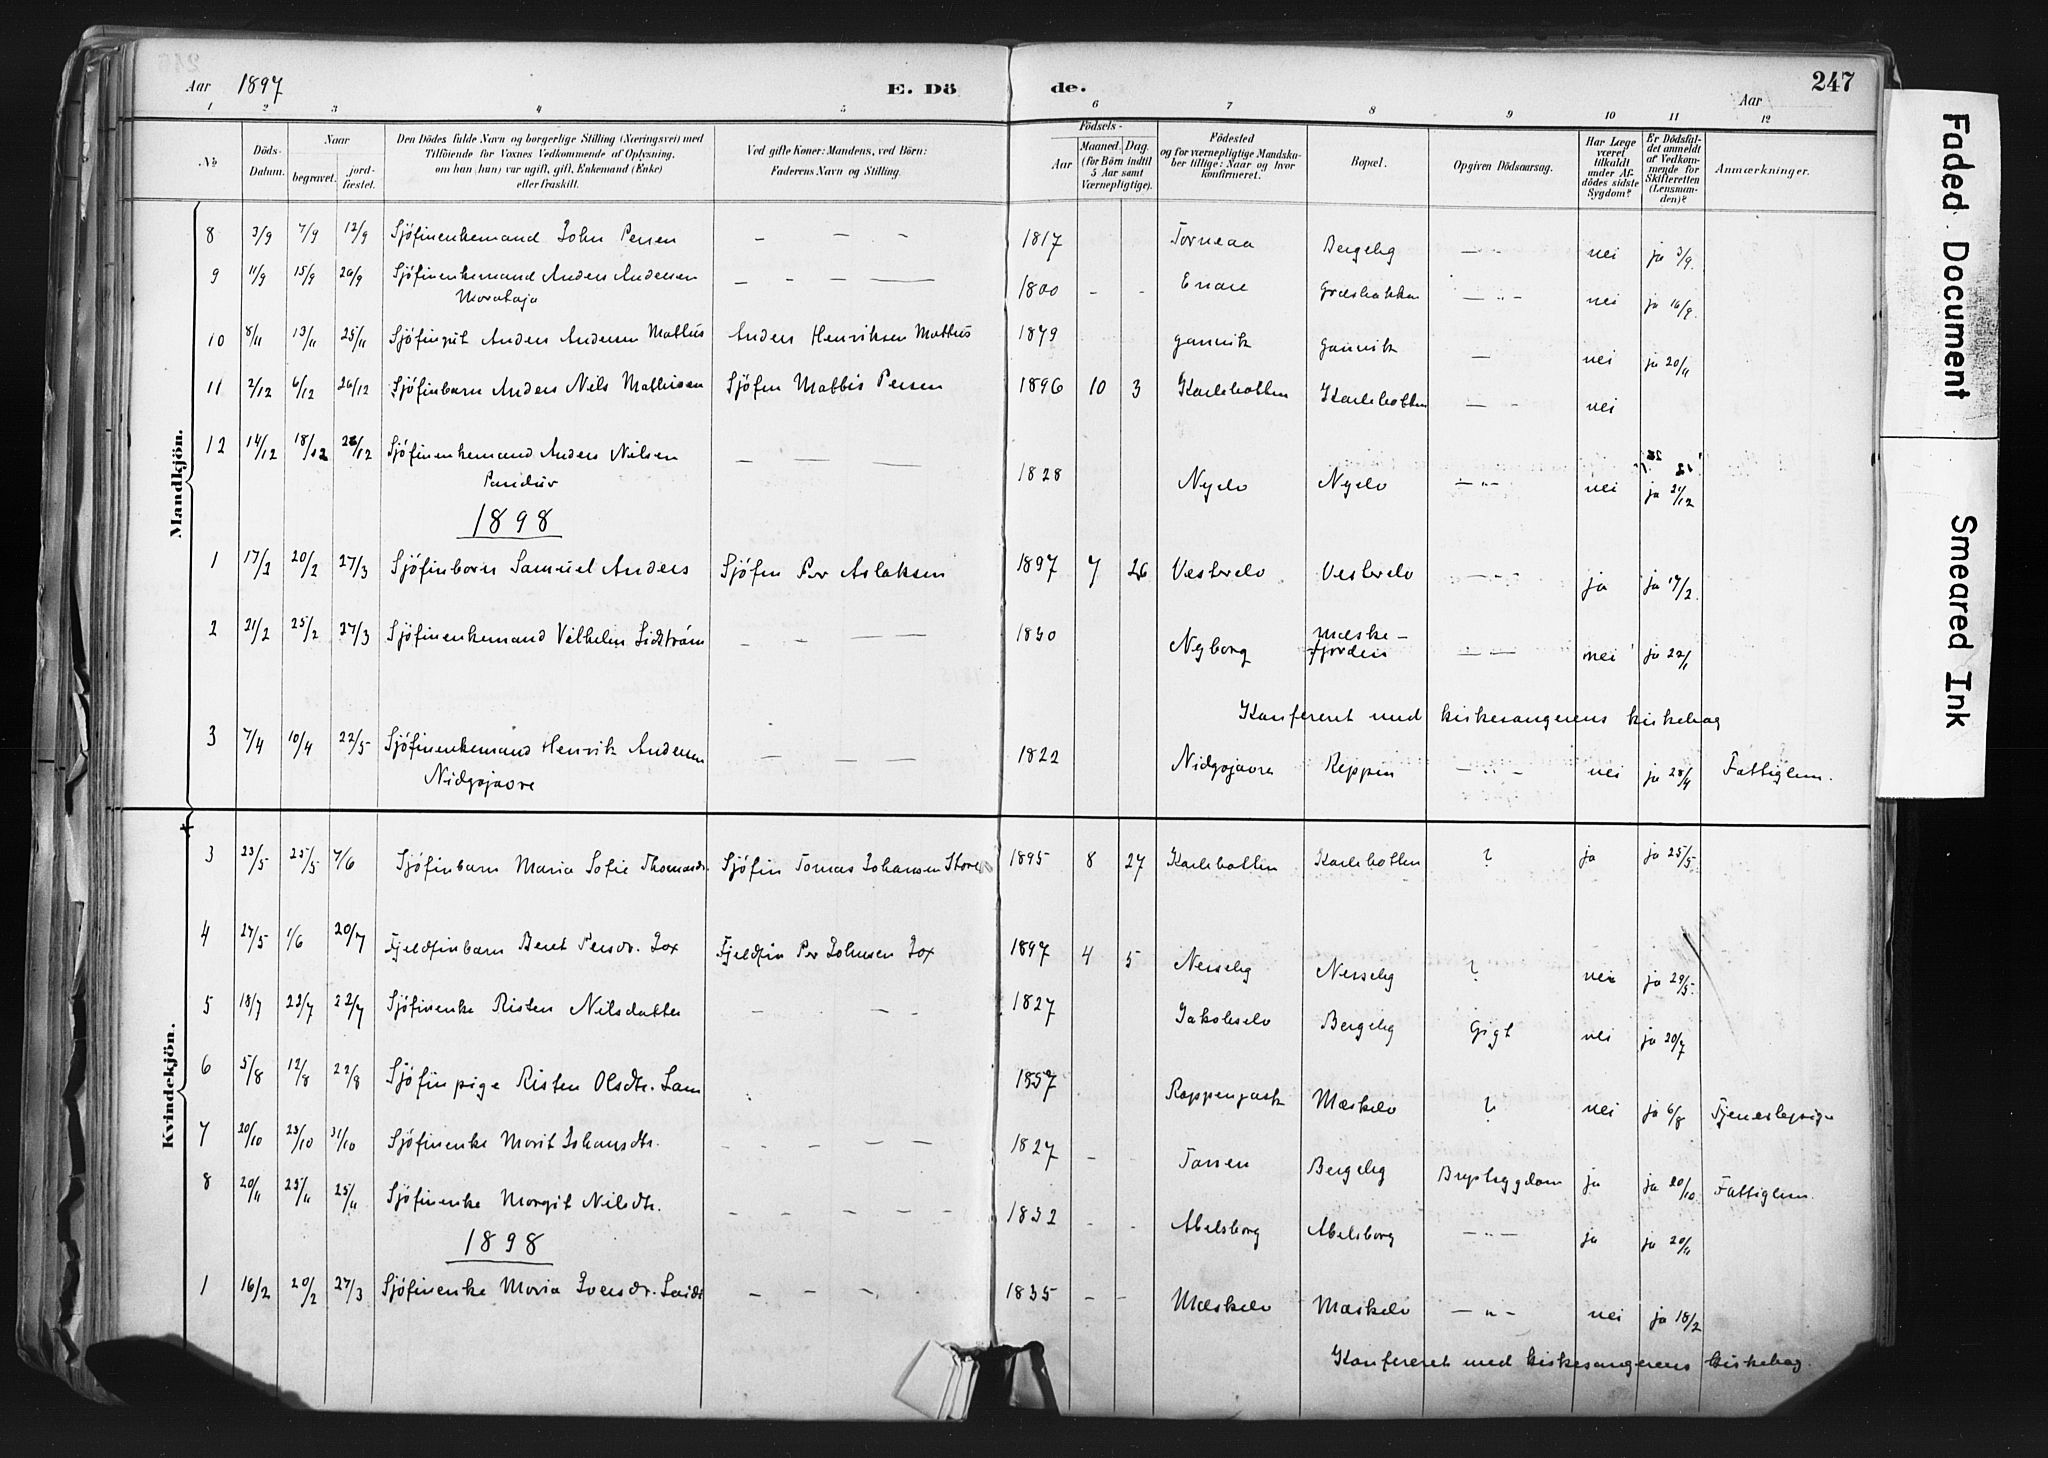 246
247
Aar 1897
E. Dö de.
Aar
1 2 3 4 5 6 7 8 9 10 11 12
№
Döds-
Datum.
Naar
begravet.
jord-
fæstet.
Den Dödes fulde Navn og borgerlige Stilling (Næringsvei) med
Tilföiende for Voxnes Vedkommende af Oplysning,
om han (hun) var ugift, gift, Enkemand (Enke)
eller fraskilt.
Ved gifte Koner: Mandens, ved Börn:
Faderens Navn og Stilling.
Födsels-
Aar
Maaned. Dag.
(for Börn indtil
5 Aar samt
Værnepligtige).
Födested
og for værnepligtige Mandska-
ber tillige: Naar og hvor
konfirmeret.
Bopæl.
Opgiven Dödsaarsag.
Har Læge
været
tilkaldt
under Af-
dödes sidste
Sygdom?
Er Dödsfal-
det anmeldt
af Vedkom-
mende for
Skifteretten
(Lensman-
den)?
Anmærkninger.
Mandkjön.
8 3/9 7/9 12/9 Sjöfinenkemand John Persen — — — 1817 Torneaa Bergeby — — nei ja 3/9.
9 11/9 15/9 26/9 Sjöfinenkemand Anders Andersen — — — 1800 - - Enare Græsbakken — " — nei ja 16/9.
Morataja
10 8/11 13/11 25/11 Sjöfingut Anders Andersen Mathis Anders Henriksen Mathis 1879 Gannvik Gannvik — nei ja 20/11
11 2/12 6/12 26/12 Sjöfinbarn Anders Nils Mathisen Sjöfin Mathis Persen 1896 10 3 Karlebotten Karlebotten — — nei
12 14/12 18/12 26/12 Sjöfinenkemand Anders Nilsen — — — 1828 Nyelv Nyelv — " — nei ja 21/12
1898
1 17/2 20/2 27/3 Sjöfinbarn Samuel Anders Sjöfin Per Aslaksen 1897 7 26 Vesterelv Vesterelv — " — ja ja 17/2.
2 21/2 25/2 27/3 Sjöfinenkemand Vilhelm Lidström — — — 1830 Nyborg Mæske-
fjorden — — nei ja 22/1
Konfereret med kirkesangerens kirkebog
3 7/4 10/4 22/5 Sjöfinenkemand Henrik Andersen — — — 1822 Nidgojavre Reppen — " — nei ja 28/4 Fattiglem.
Nidgojavre
Kvindekjön.
3 23/5 25/5 7/6 Sjöfinbarn Maria Sofie Thomasdr. Sjöfin Tomas Johansen Store 1895 8 27 Karlebotten Karlebotten ? ja ja 25/5.
4 27/5 1/6 20/7 Fjeldfinbarn Beret Persdr. Jox Fjeldfin Per Johnsen Jox 1897 4 5 Nerseby Nerseby ? nei ja 29/5.
5 18/7 22/7 22/7 Sjöfinenke Risten Nilsdatter — — — 1827 Jakobselv Bergeby Gigt nei ja 20/7
6 5/8 12/8 22/8 Sjöfinpige Risten Olsdtr. Sam 1857 Mæskelv ? nei ja 6/8 Tjenestepige
7 20/10 23/10 31/10 Sjöfinenke Marit Johansdtr. — — — — — 1827 — Bergeby Brystsygdom ja ja 20/10. Fattiglem.
8 20/11 25/11 25/11 Sjöfinenke Margit Nilsdtr. — — — — — 1832 - - Abelsborg Abelsborg — " — ja ja 20/11
1898
1 16/2 20/2 27/3 Sjöfinenke Maria Iversdr. — — — — 1835 — — Mæskelv Mæskelv — " — nei ja 18/2
Konfereret med kirkesangerens kirkebog.
Faded Document
Smeared Ink